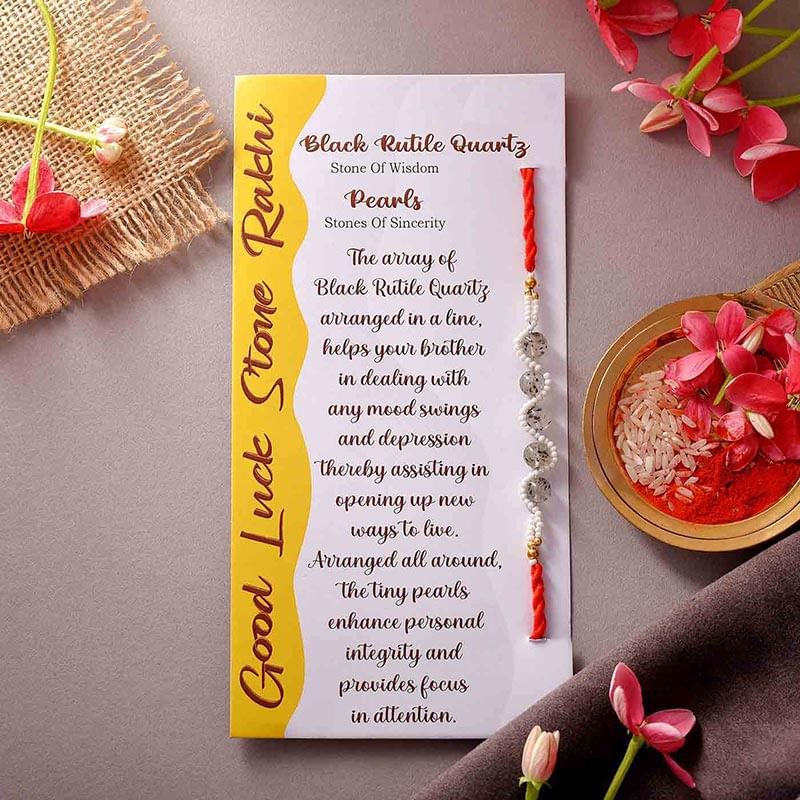 Good Luck Stone Rakhi
Black Rutile Quartz
Stone Of Wisdom
Pearls
Stones Of Sincerity
The array of
Black Rutile Quartz
arranged in a line,
helps your brother
in dealing with
any mood swings
and depression
thereby assisting in
opening up new
ways to live.
Arranged all around,
the tiny pearls
enhance personal
integrity and
provides focus
in attention.